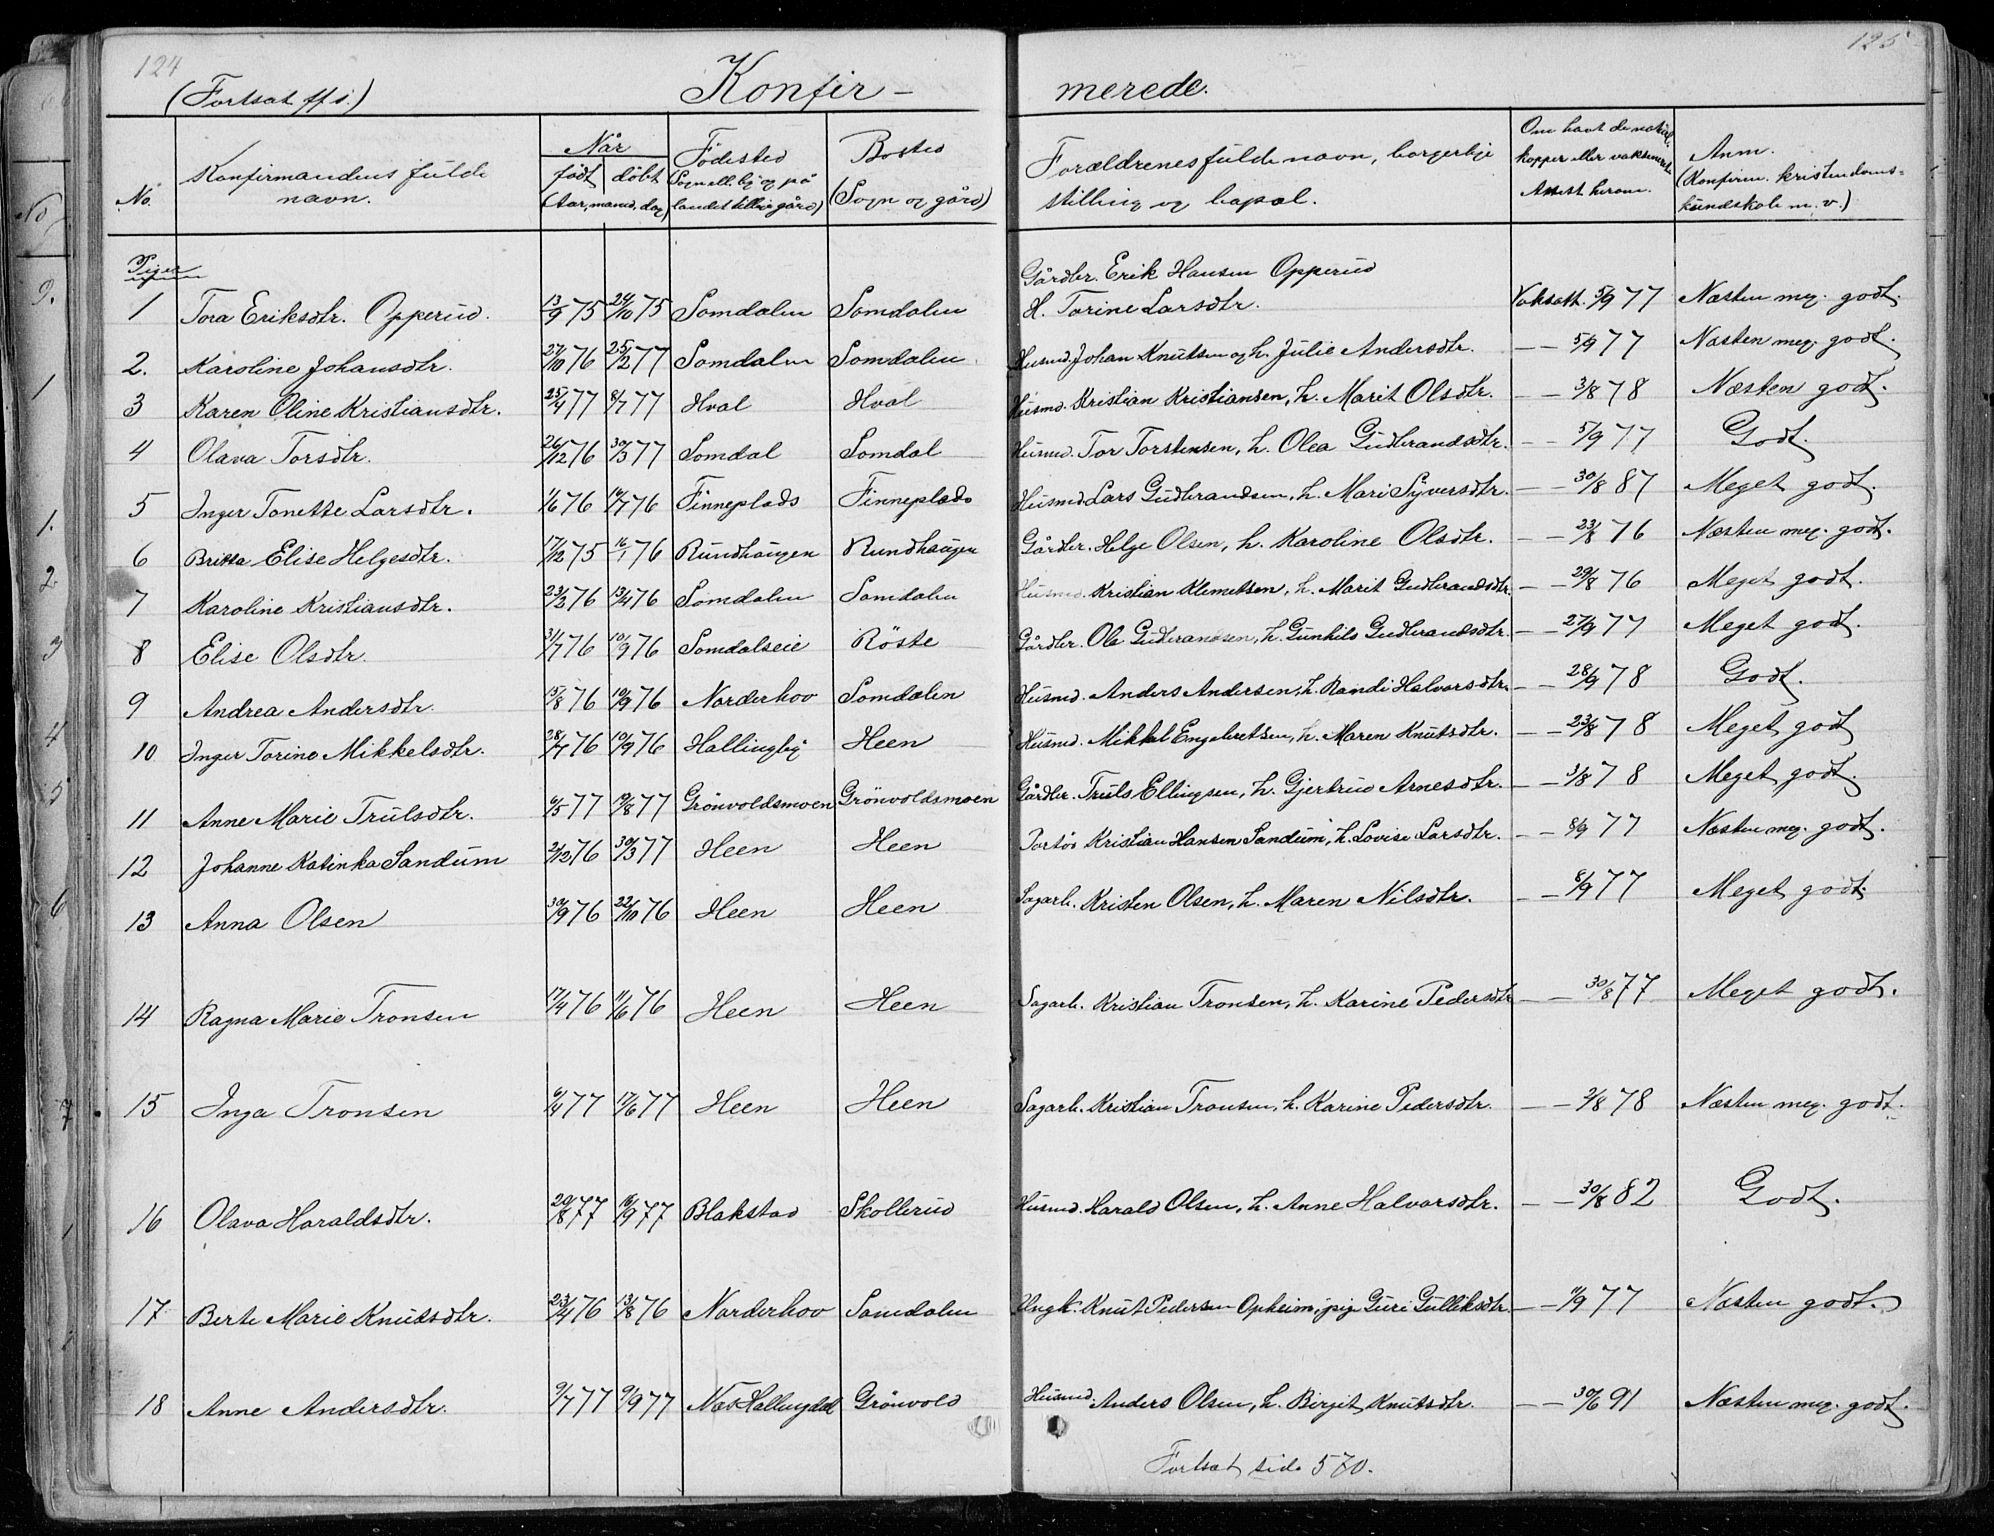 124
125
(Fortsat ff s.)
Konfir-
merede.
No.
Konfirmandens fulde navn.
Når
født
døbt
(Aar, maned, dag)
Fødested
Sogn ell. by og på
landet tillige gård)
Bosted
(Sogn og gård)
Forældrenes fulde navn, borgerlige
stilling og bopæl.
Om havt de naturl.
kopper eller vaksineret.
Attest herom.
Anm.
(Konfirm. kristendoms-
kundskab m. v.)
Piger
Gårdbr. Erik Hansen Opperud
1 Tora Eriksdtr. Opperud. 13/9 75 24/10 75 Somdalen Somdalen H. Torine Larsdtr. Vaksatt. 5/9 77 Næsten meg. godt.
2. Karoline Johansdtr. 27/10 76 25/2 77 Somdalen Somdalen Husmd. Johan Knutsen og h. Julie Andersdtr. — — 5/9 77 Næsten meg. godt.
3 Karen Oline Kristiansdtr. 25/4 77 8/7 77 Hval Hval Husmd. Kristian Kristiansen, h. Marit Olsdtr. — — 3/8 78 Næsten godt.
4 Olava Torsdtr. 26/12 76 30/3 77 Somdal Somdal Husmd. Tor Torstensen, h. Olea Gudbrandsdtr. — — 5/9 77 Godt.
5 Inger Tonette Larsdtr. 1/6 76 16/7 76 Finneplads Finneplads Husmd Lars Gudbrandsen, h. Mari Syversdtr. — — 30/8 87 Meget godt.
6 Britta Elise Helgesdtr. 17/12 75 16/1 76 Rundhaugen Rundhaugen Gårdbr. Helge Olsen, h. Karoline Olsdtr. — — 23/8 76 Næsten meg. godt.
7 Karoline Kristiansdtr. 23/2 76 13/4 76 Somdalen Somdalen Husmd. Kristian Klemetsen, h. Marit Gudbrandsdtr. — — 29/8 76 Meget godt.
8 Elise Olsdtr. 31/7 76 10/9 76 Somdalseie Röste Gårdbr. Ole Gudbrandsen, h. Gunhild Gudbrandsdtr. — — 27/9 77 Meget godt.
9 Andrea Andersdtr. 15/8 76 10/9 76 Norderhov Somdalen Husmd. Anders Andersen, h. Randi Halvorsdtr. — — 28/9 78 Godt.
10 Inger Torine Mikkelsdtr. 28/7 76 10/9 76 Hallingby Heen Husmd. Mikkel Engebretsen, h. Maren Knutsdtr. — — 23/8 78 Meget godt
11 Anne Marie Trulsdtr. 6/5 77 19/8 77 Grönvoldsmoen Grönvoldsmoen Gårdbr. Truls Ellingsen, h. Gjertrud Arnesdtr. — — 3/8 78 Meget godt.
12 Johanne Katinka Sandum 2/12 76 30/3 77 Heen Heen Kristian Hansen Sandum, h. Lovise Larsdtr. — — 8/9 77 Næsten meg. godt.
13 Anna Olsen 30/9 76 22/10 76 Heen Heen Sagarb. Kristen Olsen, h. Maren Nilsdtr. — — 8/9 77 Meget godt.
14 Ragna Marie Tronsen 17/4 76 11/6 76 Heen Heen Sagarb. Kristian Tronsen, h. Karine Pedersdtr. — — 30/8 77 Meget godt.
15 Inga Tronsen 6/4 77 17/6 77 Heen Heen Sagarb. Kristian Tronsen, h. Karine Pedersdtr. — — 3/8 78 Næsten meg. godt.
16 Olava Haraldsdtr. 20/8 77 16/9 77 Blakstad Skollerud Husmd. Harald Olsen, h. Anne Halvorsdtr. — — 30/8 82 Godt.
17 Berte Marie Knutsdtr. 23/4 76 13/8 76 Norderhov Somdalen Ungk. Knut Pedersen Opheim, pig Guri Gulliksdtr. — — 11/9 77 Næsten godt.
18 Anne Andersdtr. 9/7 77 9/9 77 Næs Hallingdal Grönvold Husmd. Anders Olsen, h. Birgit Knutsdtr. — — 30/6 91 Næsten meg. godt.
Fortsat side 570.